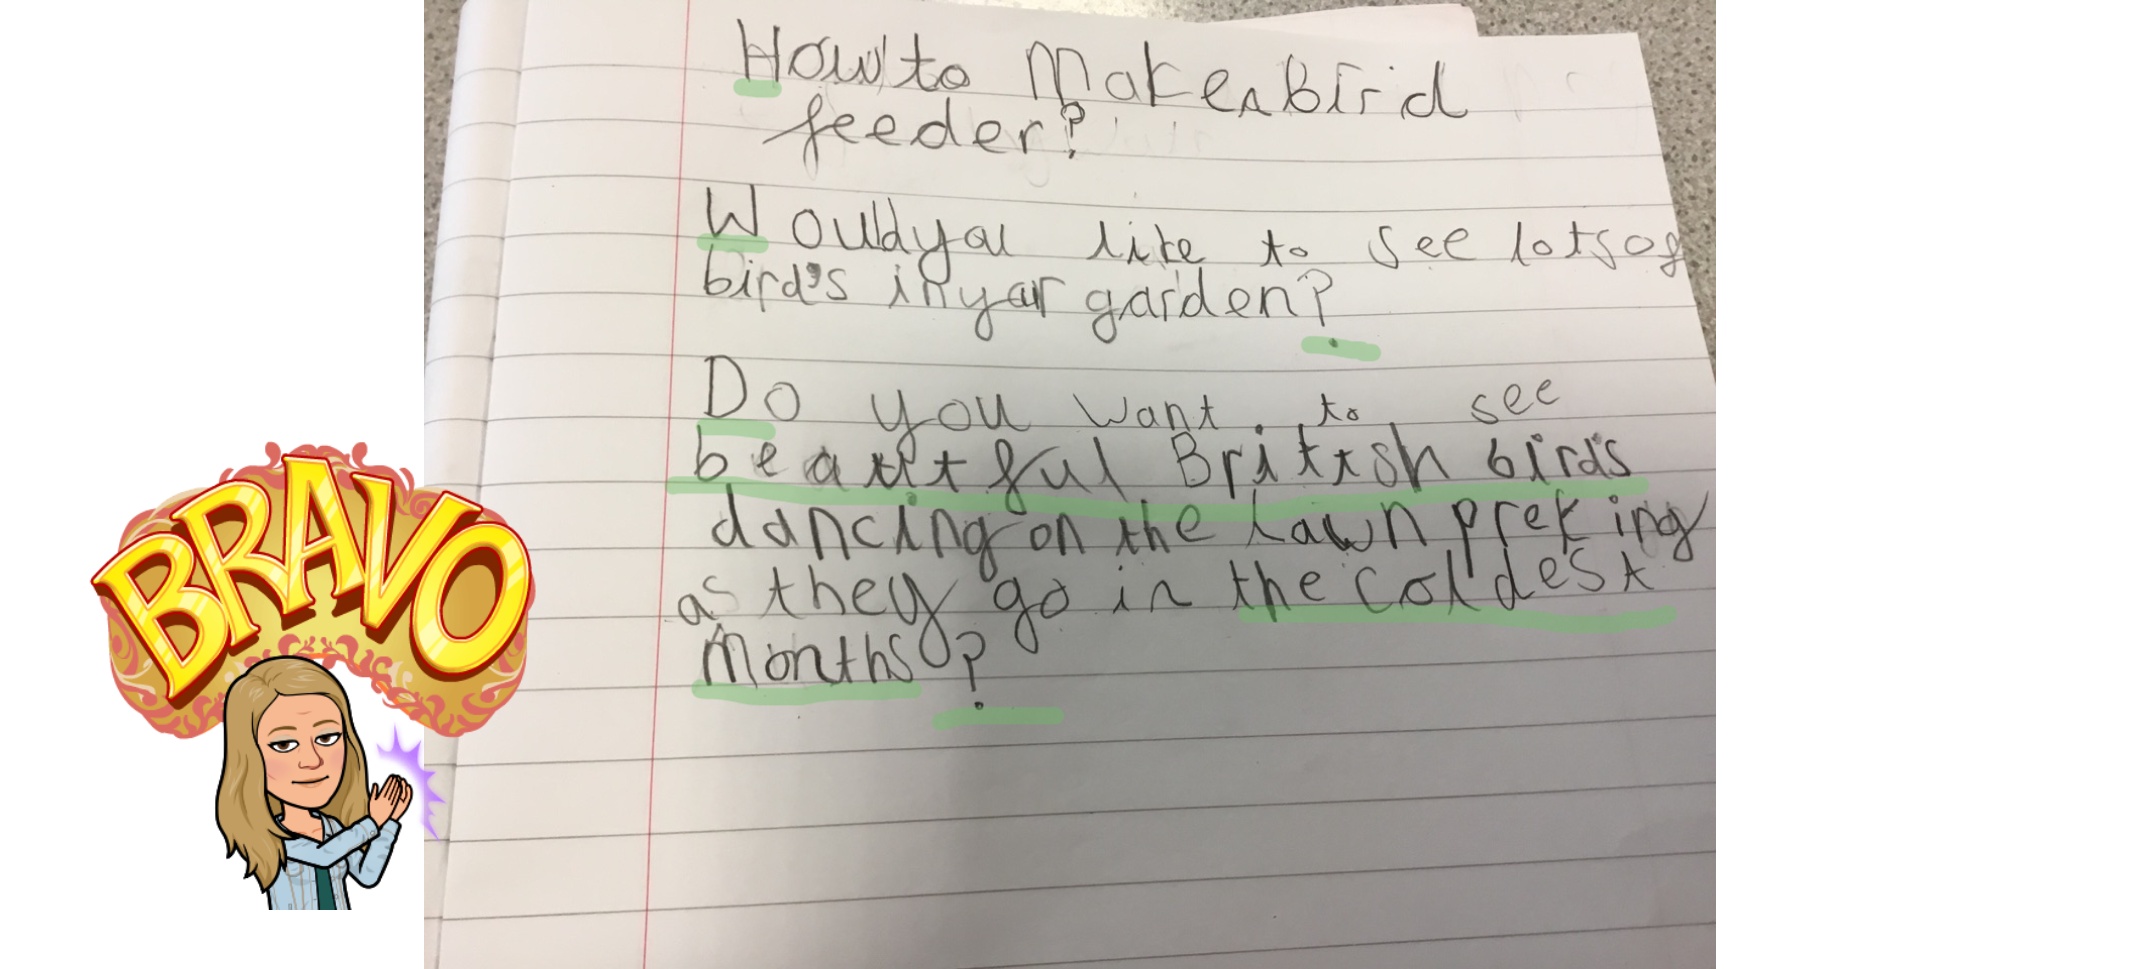 How to Make a bird
feeder?
Would you like to see lots of
bird's in your garden?
Do you want to see
beautiful British birds
dancing on the Lawn preking
as they go in the coldest
Months?
BRAVO